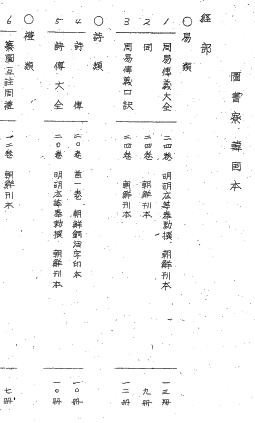 圖書寮 韓国本
経部
○易類
1 周易傳義大全 二四卷 明胡広等奉勅撰 朝鮮刊本 一三冊
2 同 二四卷 朝鮮刊本 九冊
3 周易傳義口訣 二四卷 朝鮮刊本 一二冊
○詩類
4 詩傳 二〇卷 首一卷 朝鮮銅活字印本 一〇冊
5 詩傳大全 二〇卷 明胡広等奉勅撰 朝鮮刊本 一〇冊
○禮類
6 纂圖互註周禮 一二卷 朝鮮刊本 七冊